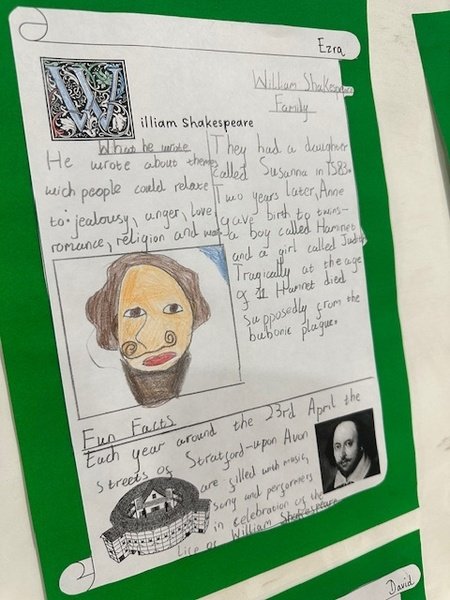 Ezra
William Shakespeare
What he wrote
He wrote about themes
wich people could relate
to: jealousy, anger, love
romance, religion and war
William Shakespeare
Family
They had a daughter
called Susanna in 1583.
Two years later, Anne
gave birth to twins-
a boy called Hamnet
and a girl called Judith
Tragically at the age
of 11 Hamnet died
supposedly from the
bubonic plague.
Fun Facts
Each year around the 23rd April the
streets of Stratford-upon Avon
are filled with music,
song and performers
in celebration of the
life of William Shakespeare
David